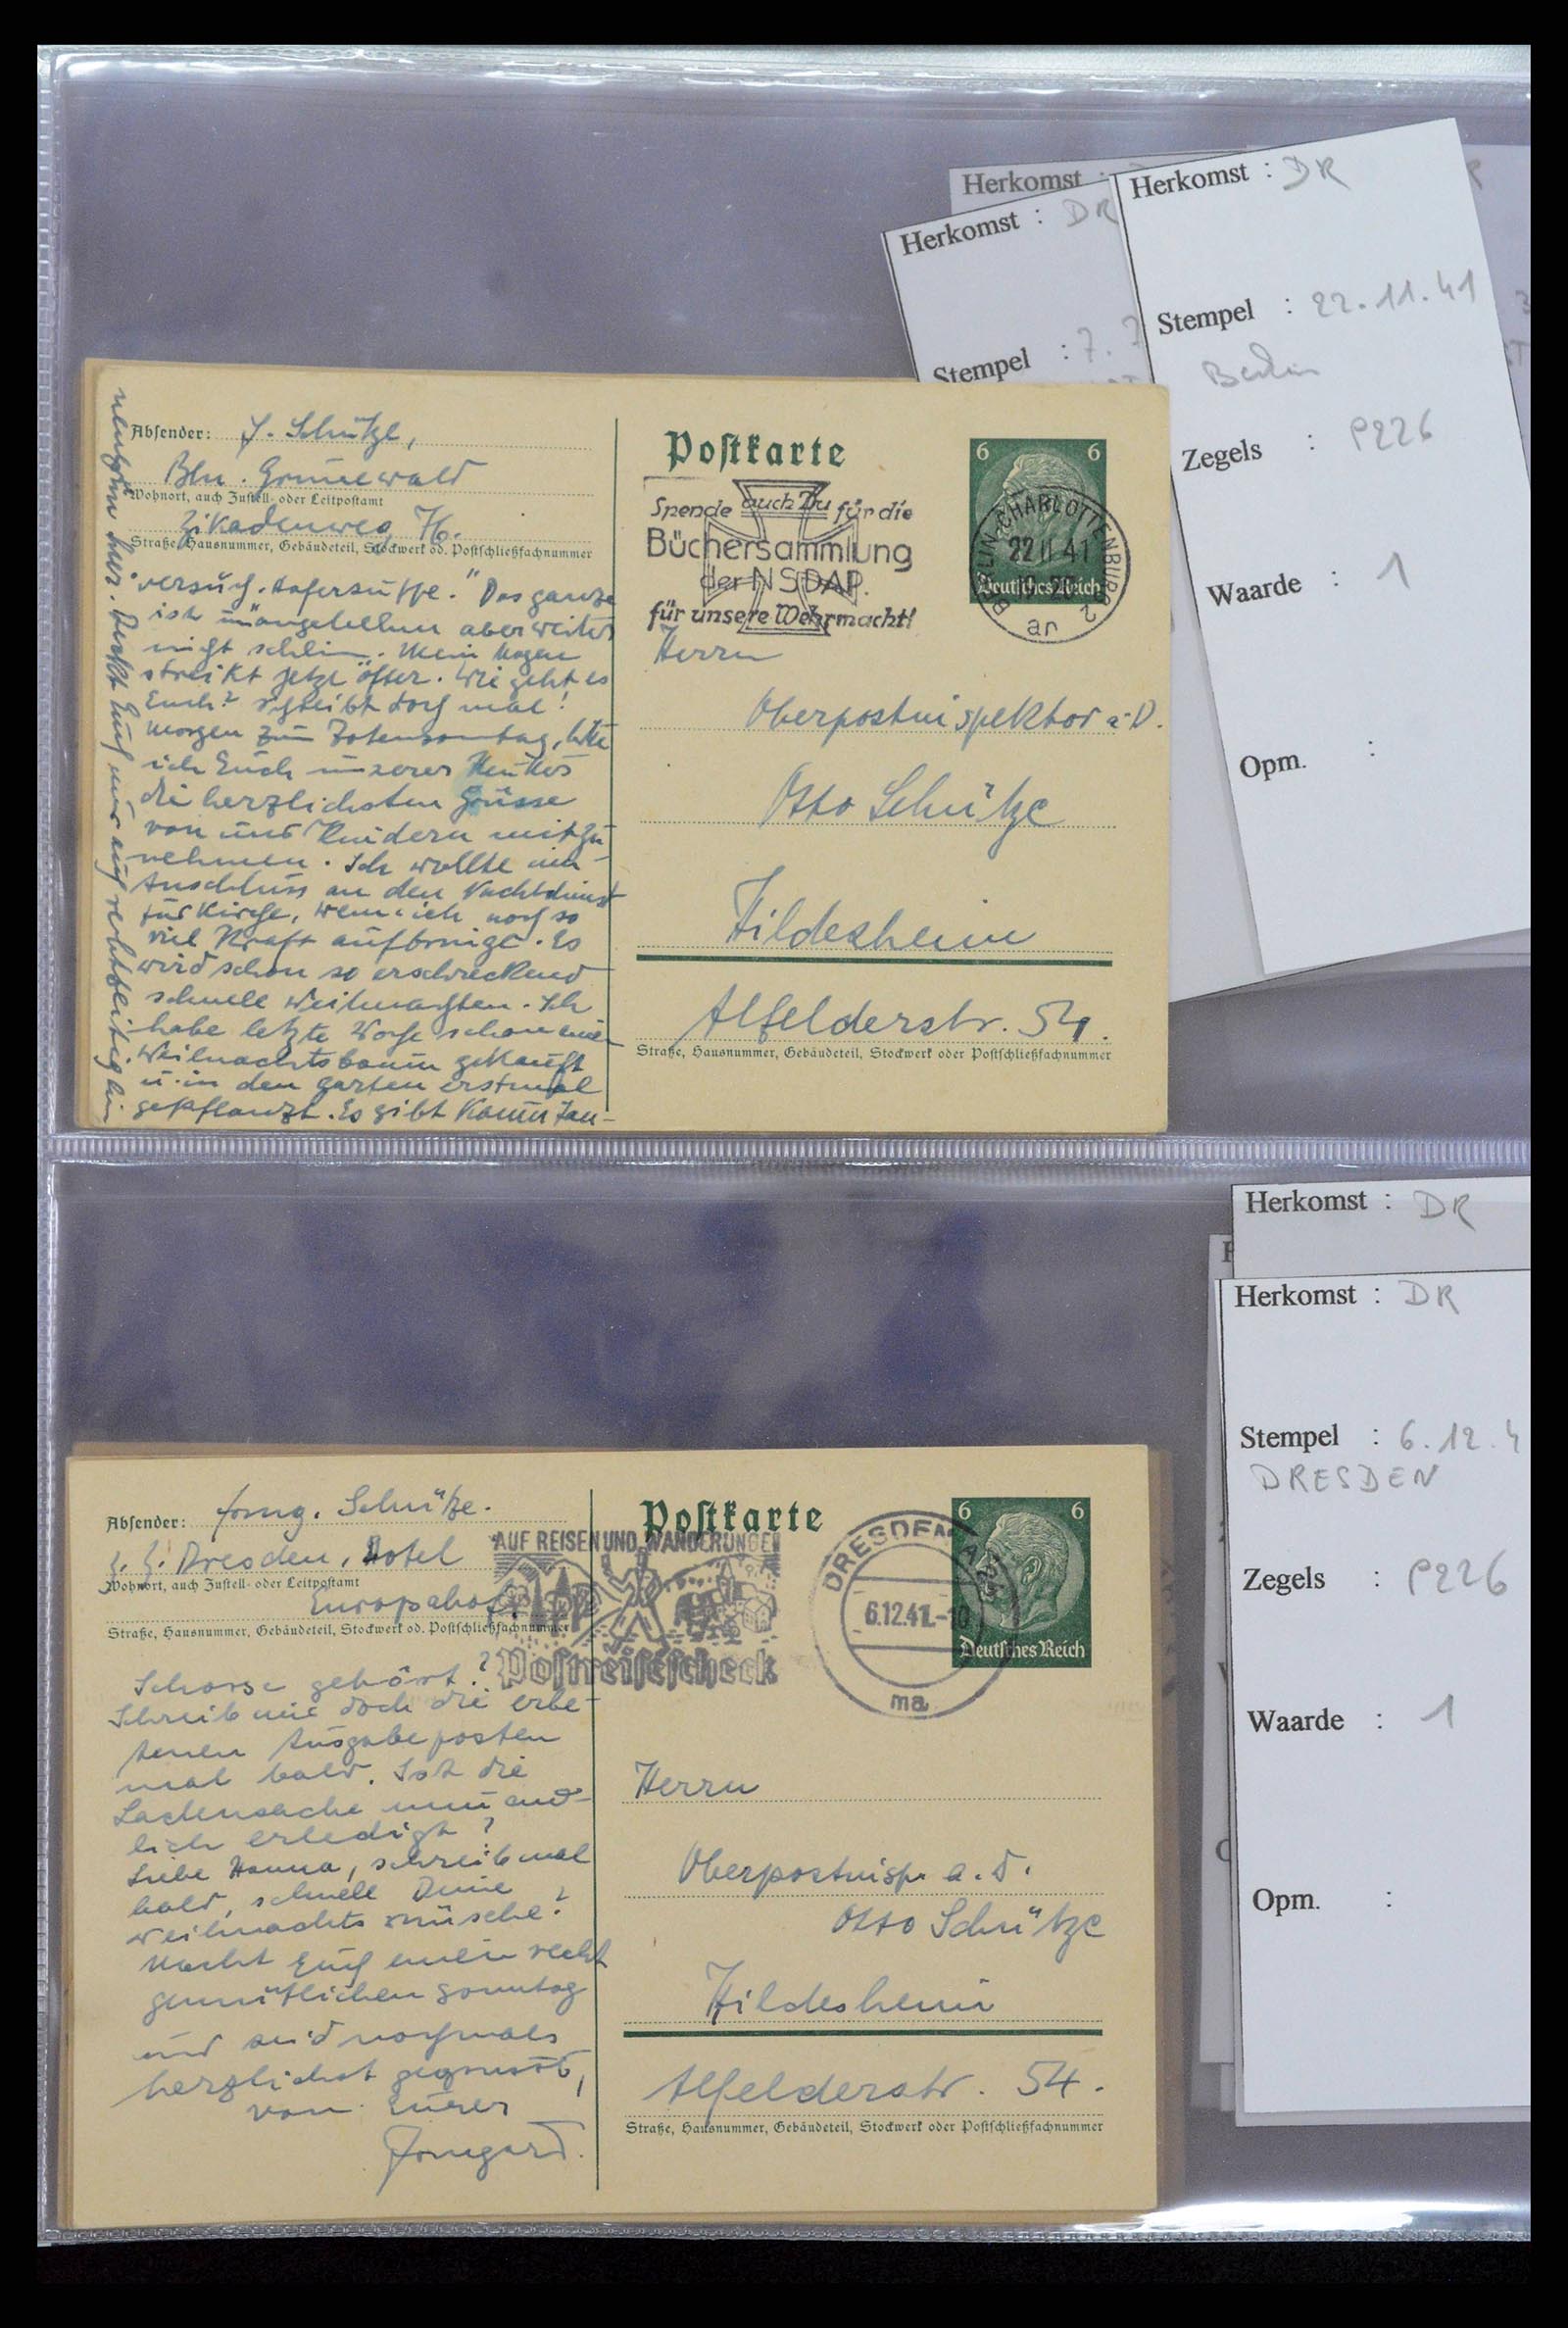 Herkomst :
Herkomst : DR
Stempel : 7. 7
Herkomst : DR
Stempel : 22.11.41
Berlin
Zegels : P226
Waarde : 1
Opm. :
Absender: J. Schütze,
Bln. Grunewald
Wohnort, auch Zustell- oder Leitpostamt
Zikadenweg 76.
Straße, Hausnummer, Gebäudeteil, Stockwerk od. Postschließfachnummer
versuch. Hafersuppe." Das ganze
ist unangenehm aber weiter
nicht schlim. Mein Magen
streikt jetzt öfter. Wie geht es
Euch? Schreibt doch mal!
Morgen zum Totensonntag, bitte
ich Euch unserer
die herzlichsten Grüsse
von uns Kindern mitzu-
nehmen. Ich wollte im
Anschluss an den Nachtdienst
zur Kirche, wenn ich noch so
viel Kraft aufbringe. Es
wird schon so erschreckend
schnell Weihnachten. Ich
habe letzte Woche schon einen
Weihnachtsbaum gekauft
u. in den Garten erstmal
gepflanzt. Es gibt kaum Tan-
nengrün hier. Deckt Euch nur auch rechtzeitig ein.
Postkarte
6 6
Deutsches Reich
Spende auch Du für die
Büchersammlung
der NSDAP.
für unsere Wehrmacht!
BERLIN-CHARLOTTENBURG 2
22.11.41
ar
Herrn
Oberpostinspektor a.D.
Otto Schütze
Hildesheim
Alfelderstr. 54.
Straße, Hausnummer, Gebäudeteil, Stockwerk oder Postschließfachnummer
Herkomst : DR
Herkomst : DR
Stempel : 6.12.4
DRESDEN
Zegels : P226
Waarde : 1
Opm. :
Absender: Irmg. Schütze.
z. Z. Dresden, Hotel
Wohnort, auch Zustell- oder Leitpostamt
Europahof.
Straße, Hausnummer, Gebäudeteil, Stockwerk od. Postschließfachnummer
Schorse gehört?
Schreib mir doch die erbe-
tenen Ausgabeposten
mal bald. Ist die
Sachensache nun end-
lich erledigt?
Liebe Hanna, schreib mal
bald, schnell Deine
Weihnachtswünsche!
Macht Euch einen recht
gemütlichen Sonntag
und seid nochmals
herzlichst gegrüsst,
von Eurer
Irmgard.
Postkarte
6 6
Deutsches Reich
AUF REISEN UND WANDERUNGEN
Postreisescheck
DRESDEN A
6.12.41.-10
ma
Herrn
Oberpostinsp. a. D.
Otto Schütze
Hildesheim
Alfelderstr. 54.
Straße, Hausnummer, Gebäudeteil, Stockwerk oder Postschließfachnummer